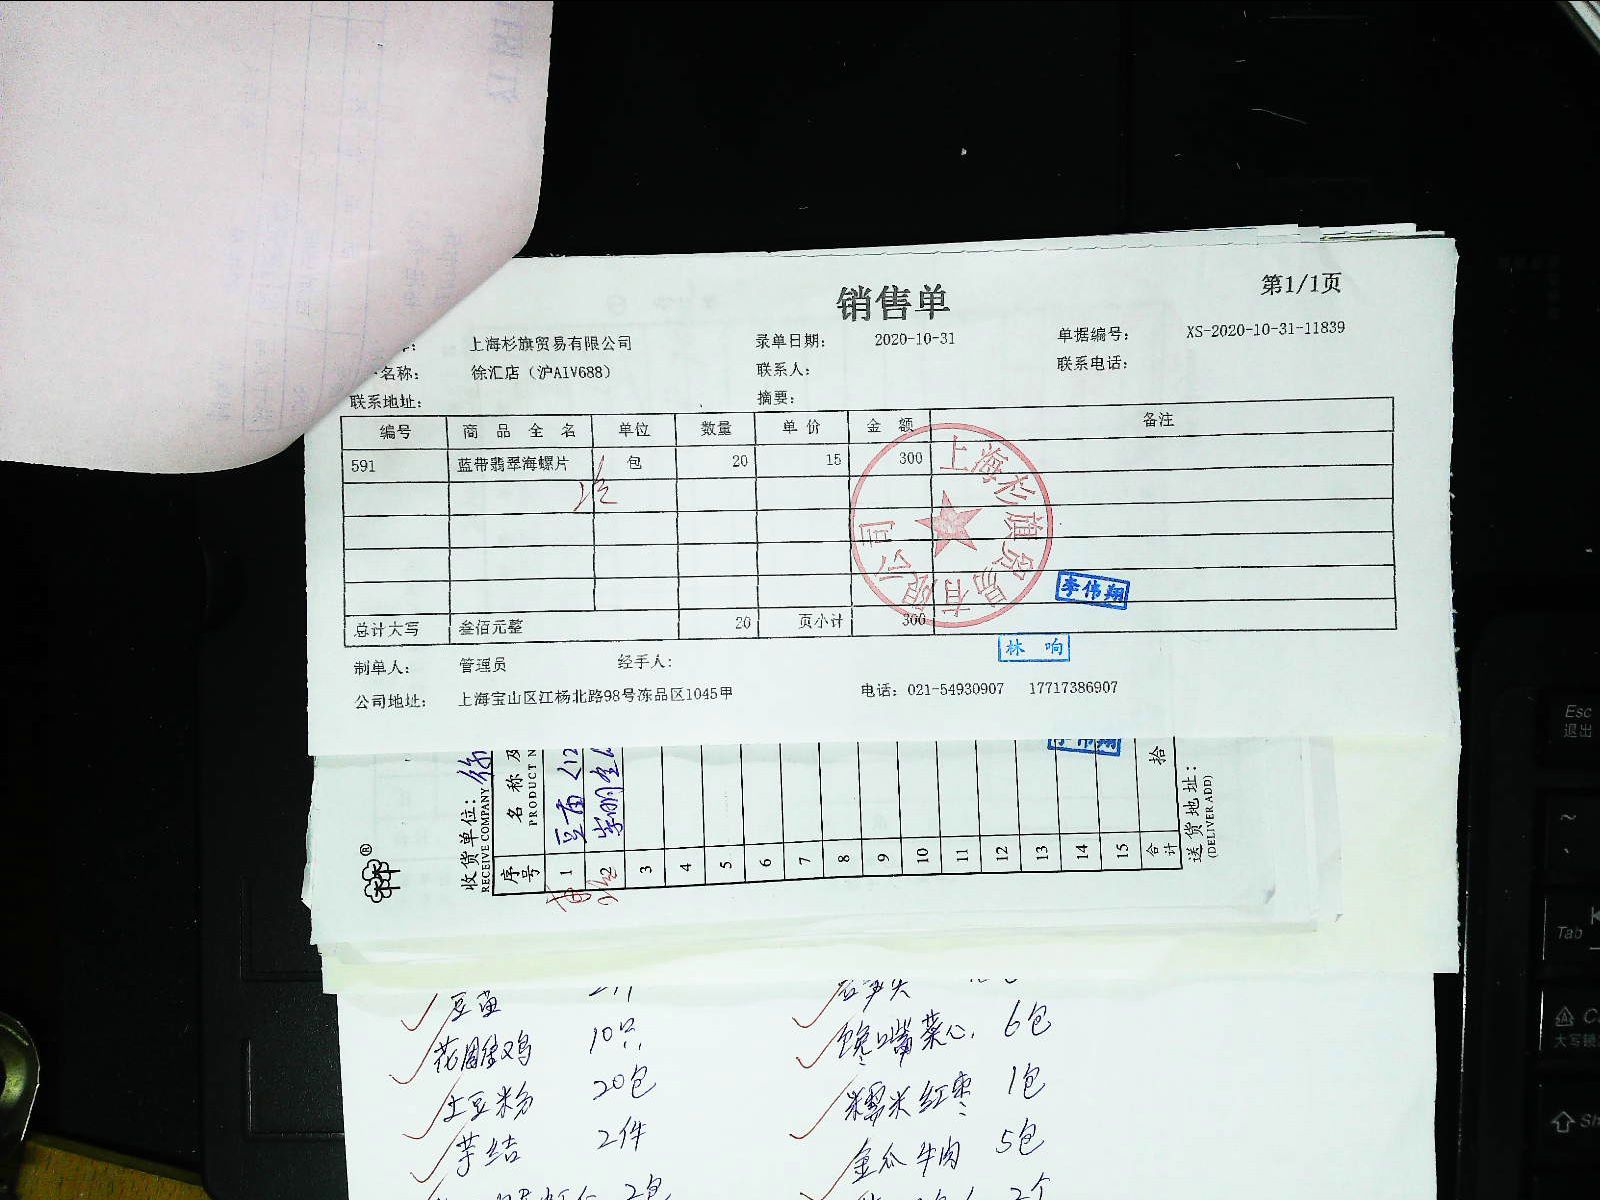 销售单
第1/1页
上海杉旗贸易有限公司 录单日期： 2020-10-31 单据编号： XS-2020-10-31-11839
名称： 徐汇店（沪A1V688） 联系人： 联系电话：
联系地址： 摘要：
编号 商品全名 单位 数量 单价 金额 备注
591 蓝带翡翠海螺片 包 20 15 300
上海杉旗贸易有限公司
李伟翔
总计大写 叁佰元整 20 页小计 300
林响
制单人： 管理员 经手人：
公司地址： 上海宝山区江杨北路98号冻品区1045甲 电话：021-54930907 17717386907
收货单位：徐
RECEIVE COMPANY
序号 名称及
PRODUCT N
1 豆苗
2
3
4
5
6
7
8
9
10
11
12
13
14
15
合计 拾
送货地址：
(DELIVER ADD)
李伟翔
®
豆苗
花雕醉鸡 10只
土豆粉 20包
芋结 2件
2包
馋嘴菜心 6包
糯米红枣 1包
金瓜牛肉 5包
2个
Esc
退出
Tab